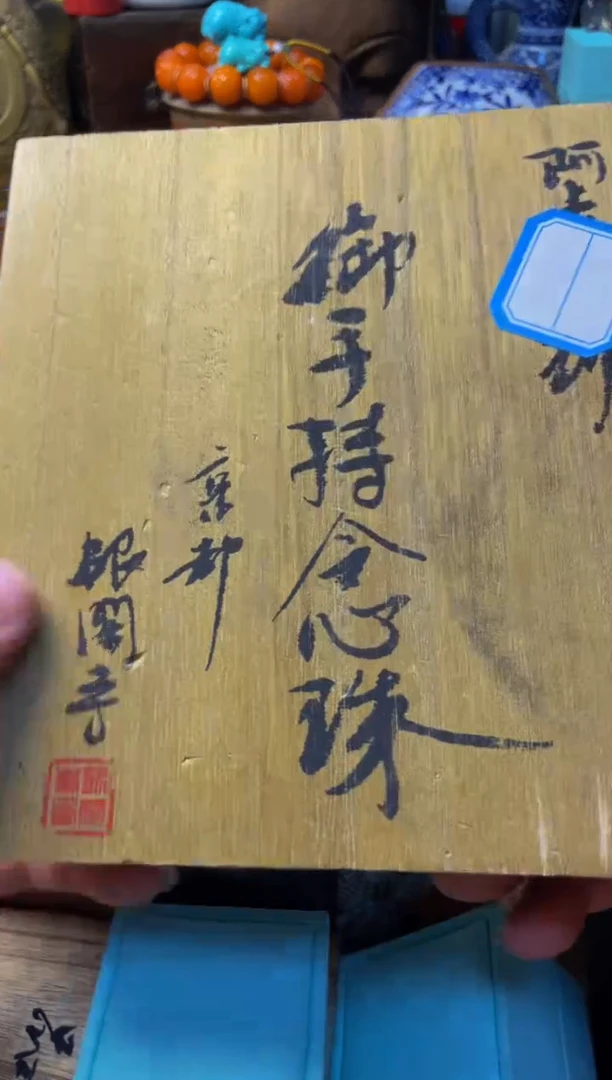 阿
御手持念珠
京都
銀閣寺